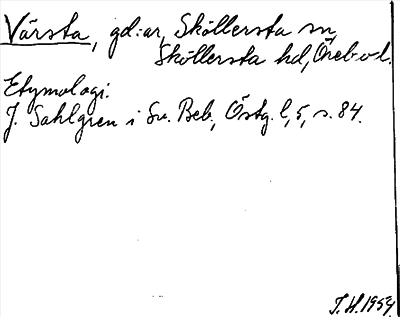 Värsta, gd:ar, Sköllersta sn,
Sköllersta hd, Öreb. l.
Etymologi:
J. Sahlgren i Sv. Beb., Östg. l, 5, s. 84.
T. H. 1954.